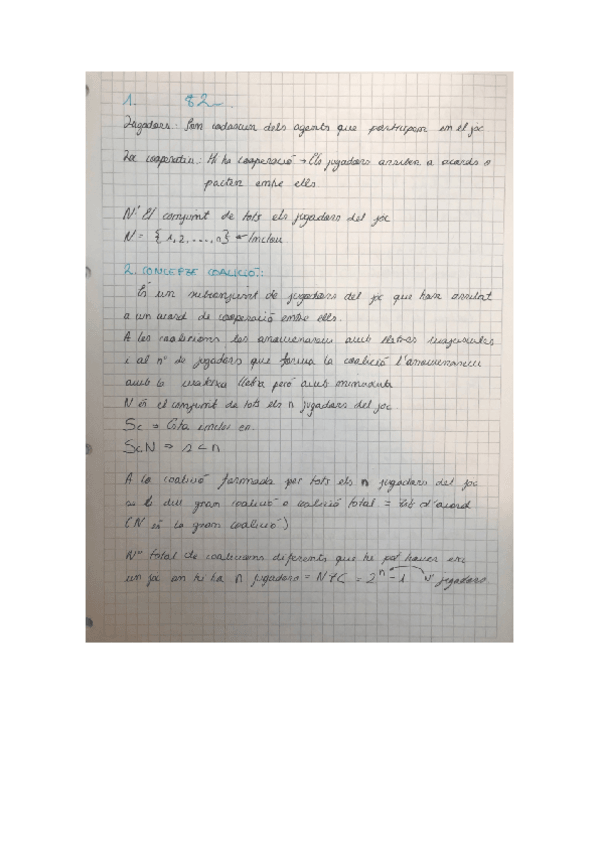 1. 82
Jugadors: Són cadascun dels agents que participen en el joc
Joc cooperatiu: Hi ha cooperació → Els jugadors arriben a acords o
pacten entre ells.
N: El conjunt de tots els jugadors del joc
N = {1, 2, ..., n} ← Inclou
2. CONCEPTE COALICIÓ:
És un subconjunt de jugadors del joc que han arribat
a un acord de cooperació entre ells.
A les coalicions les anomenarem amb lletres majúscules
i al nº de jugadors que forma la coalició l'anomenarem
amb la mateixa lletra però amb minúscula
N és el conjunt de tots els n jugadors del joc
Sc ⇒ Esta inclos en.
S⊂N ⇒ s < n
A la coalició formada per tots els n jugadors del joc
se li diu gran coalició o coalició total = d'acord
(N és la gran coalició)
Nº total de coalicions diferents que hi pot haver en
un joc on hi ha n jugadors = NTC = 2ⁿ - 1 nº jugadors